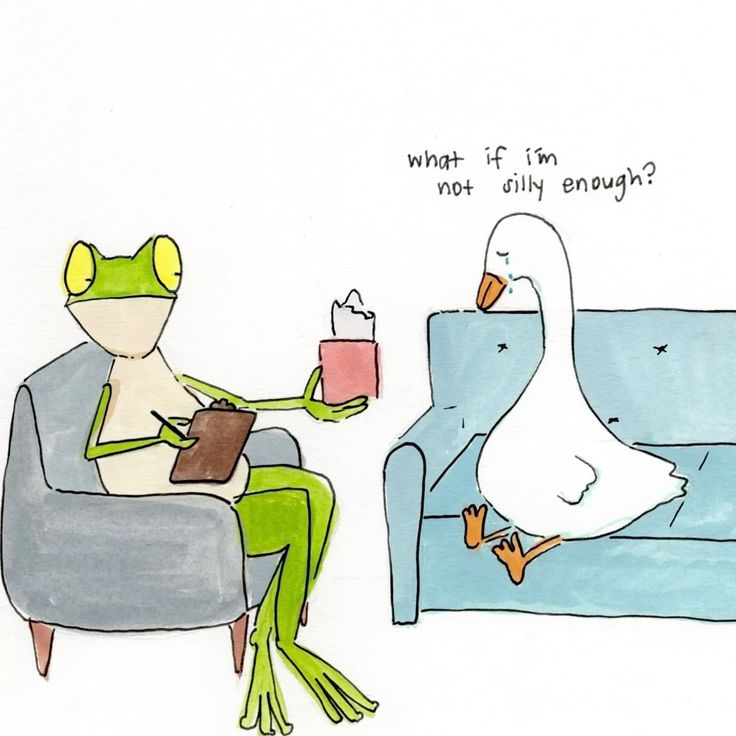 what if i'm
not silly enough?